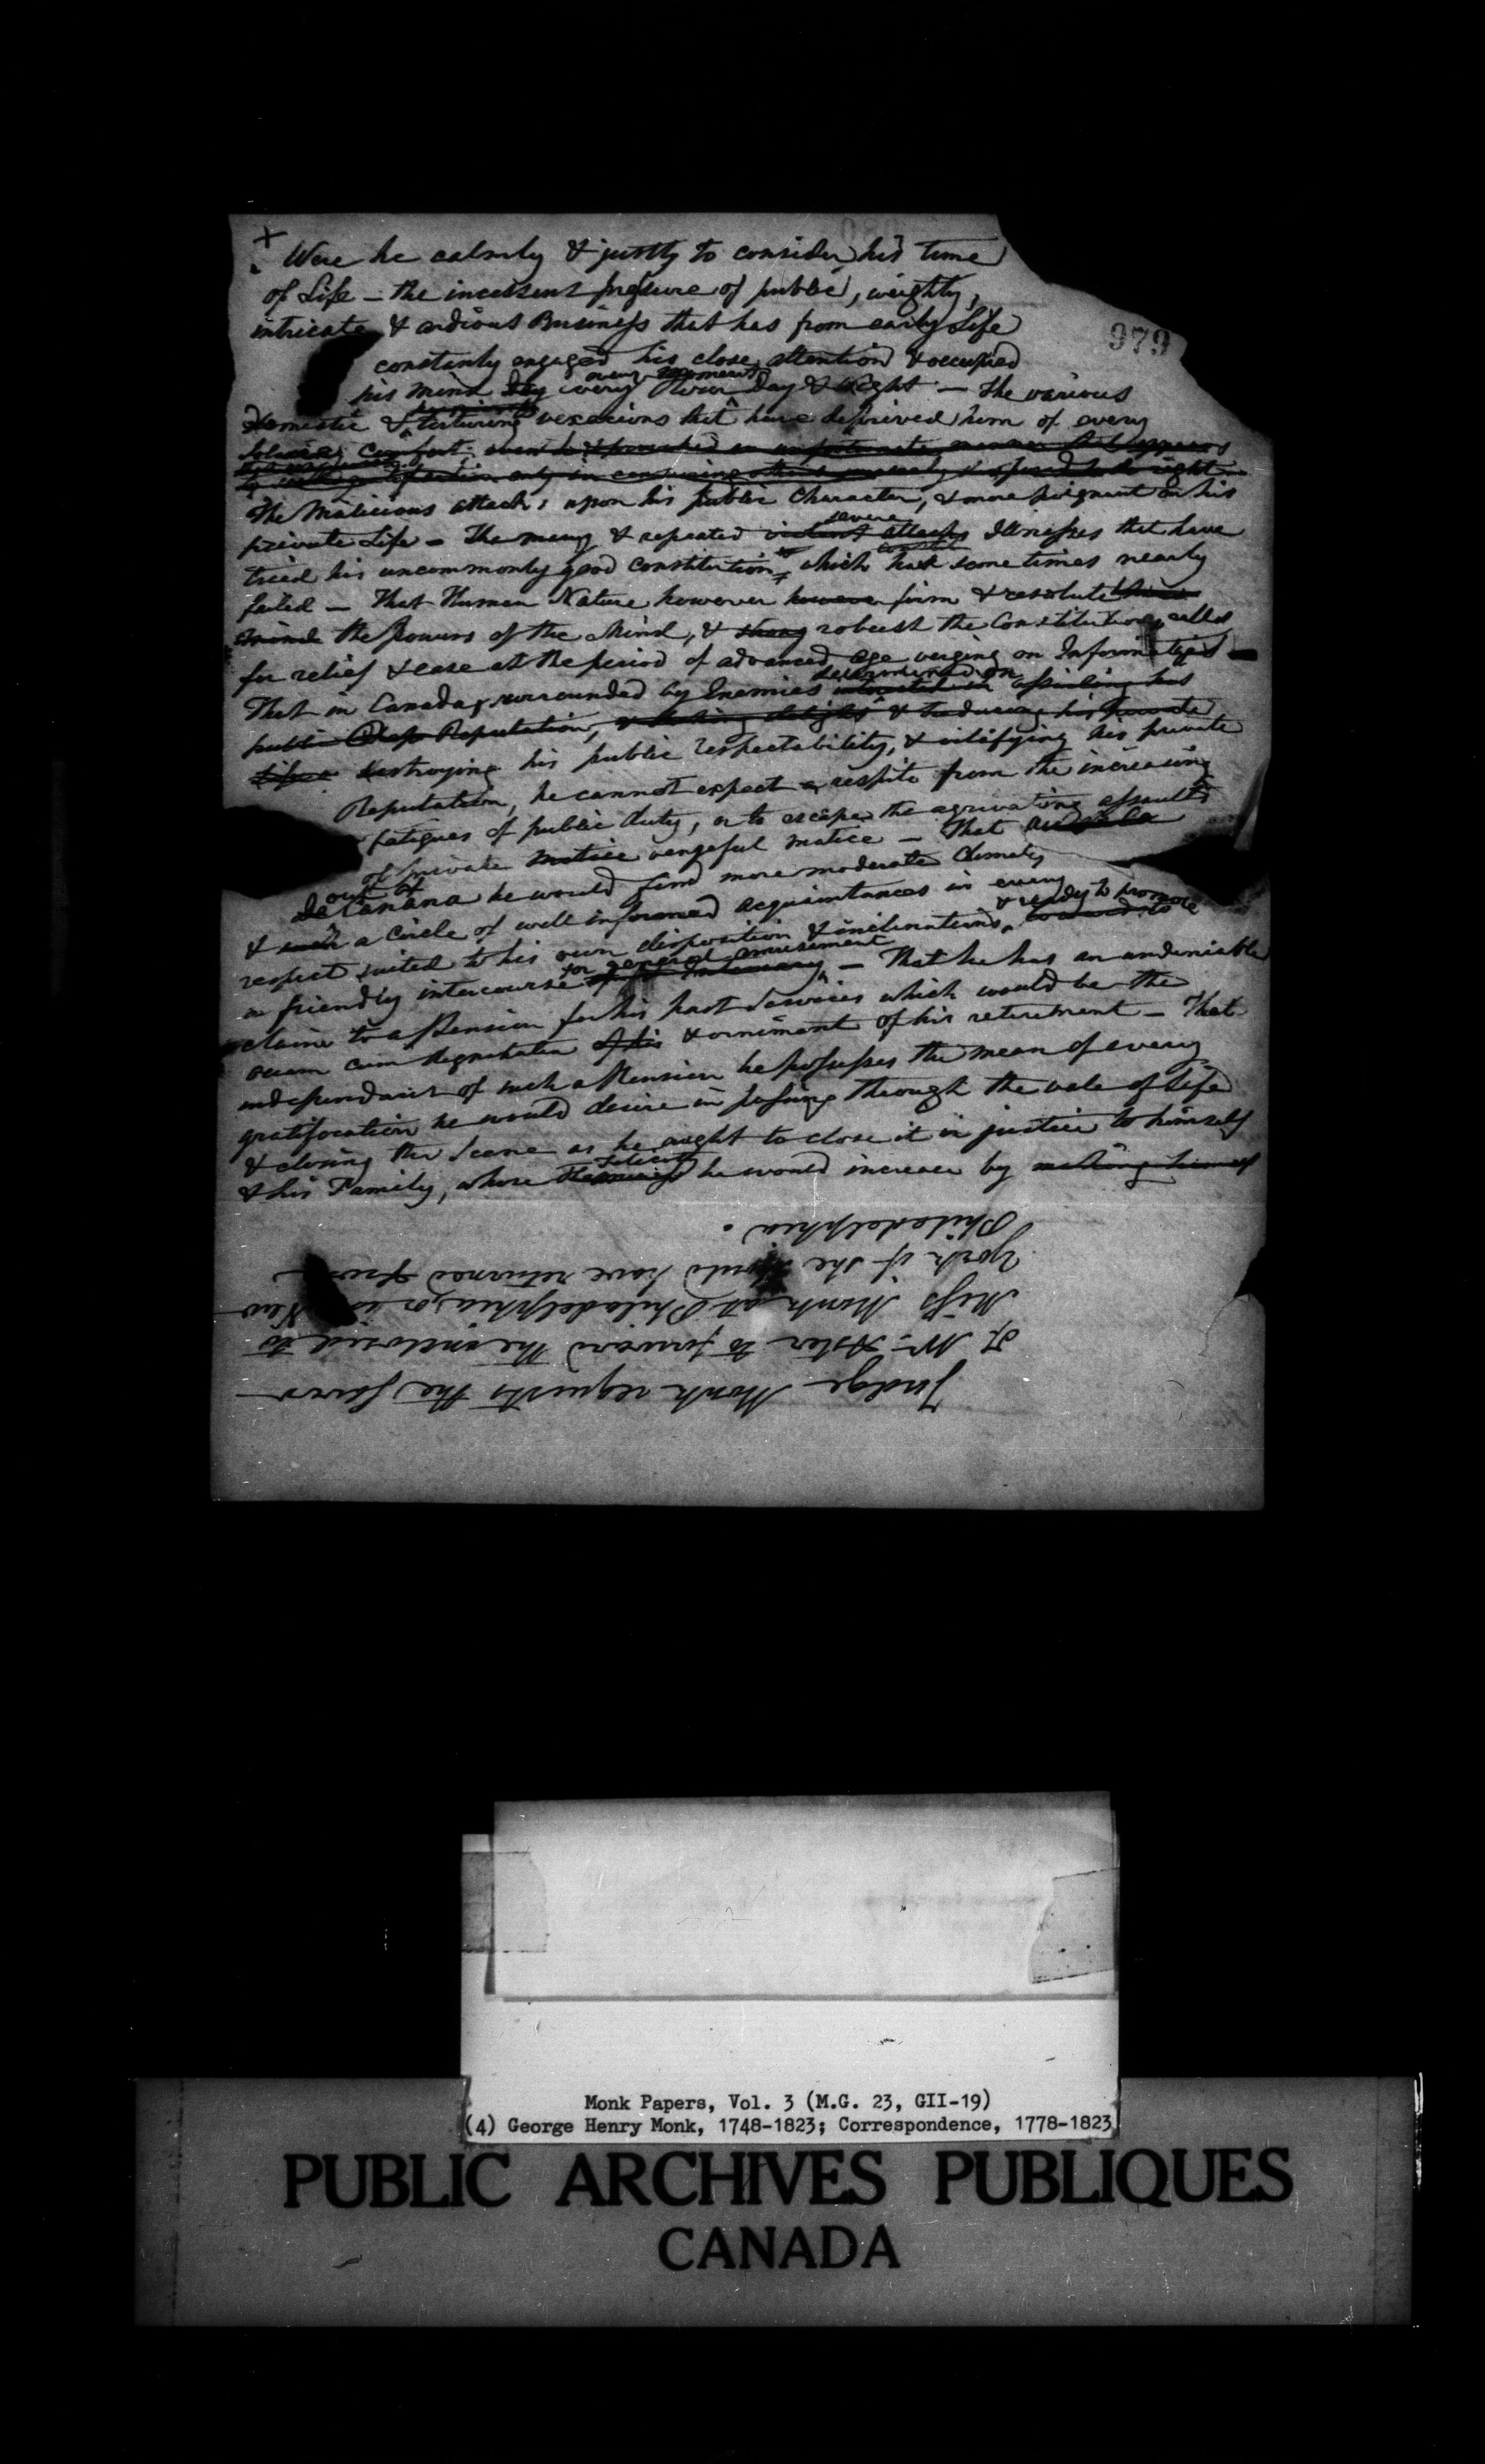 979
+ Were he calmly & justly to consider his time
of Life – the incessent pressure of public, weighty,
intricate & ardious Business that has from early Life
constantly engaged his close attention & occupied
every moment
his mind day every hour day & Night – The various
Domestic & torturing vexacions that have deprived him of every
Comfort,
The Malicious attacks upon his public Character, & more poignant on his
severe
private Life – The many & repeated violent attacks Illnesses that have
tried his uncommonly good constitution, which had sometimes nearly
failed – That Human Nature however however firm & resolute
mind the powers of the Mind, & strong robust the Constitution, called
for relief & ease at the period of advanced age verging on
determined on
That in Canada, surrounded by Enemies assailing his
public Reputation, & traducing his private
Life destroying his public respectability, & vilifying his private
Reputation, he cannot expect a respite from the increasing
fatigues of public duty, or to escape the agrivating assaults
of private malice vengeful malice – That
out of
Canana he would find more moderate Climate,
& such a Circle of well informed acquaintances in every
& ready to promote
respect suited to his own disposition & inclinations,
for general amusement
in friendly intercourse – That he has an undeniable
claim to a Pension for his past Services which would be the
ocium cum dignitate of his & orniment of his retirement – That
independant of such a Pension he possesses the mean of every
gratification he would desire in passing through the vale of Life
& closing the Scene as he aught to close it in justice to himself
felicity
& his Family, whose he would increase by making himself
Judge Monk requests the favor
of Mr. Astor to forward the inclosed to
Miss Monk at Philadelphia, or in New
York if she should have returned from
Philadelphia.
Monk Papers, Vol. 3 (M.G. 23, GII-19)
(4) George Henry Monk, 1748-1823; Correspondence, 1778-1823
PUBLIC ARCHIVES PUBLIQUES
CANADA